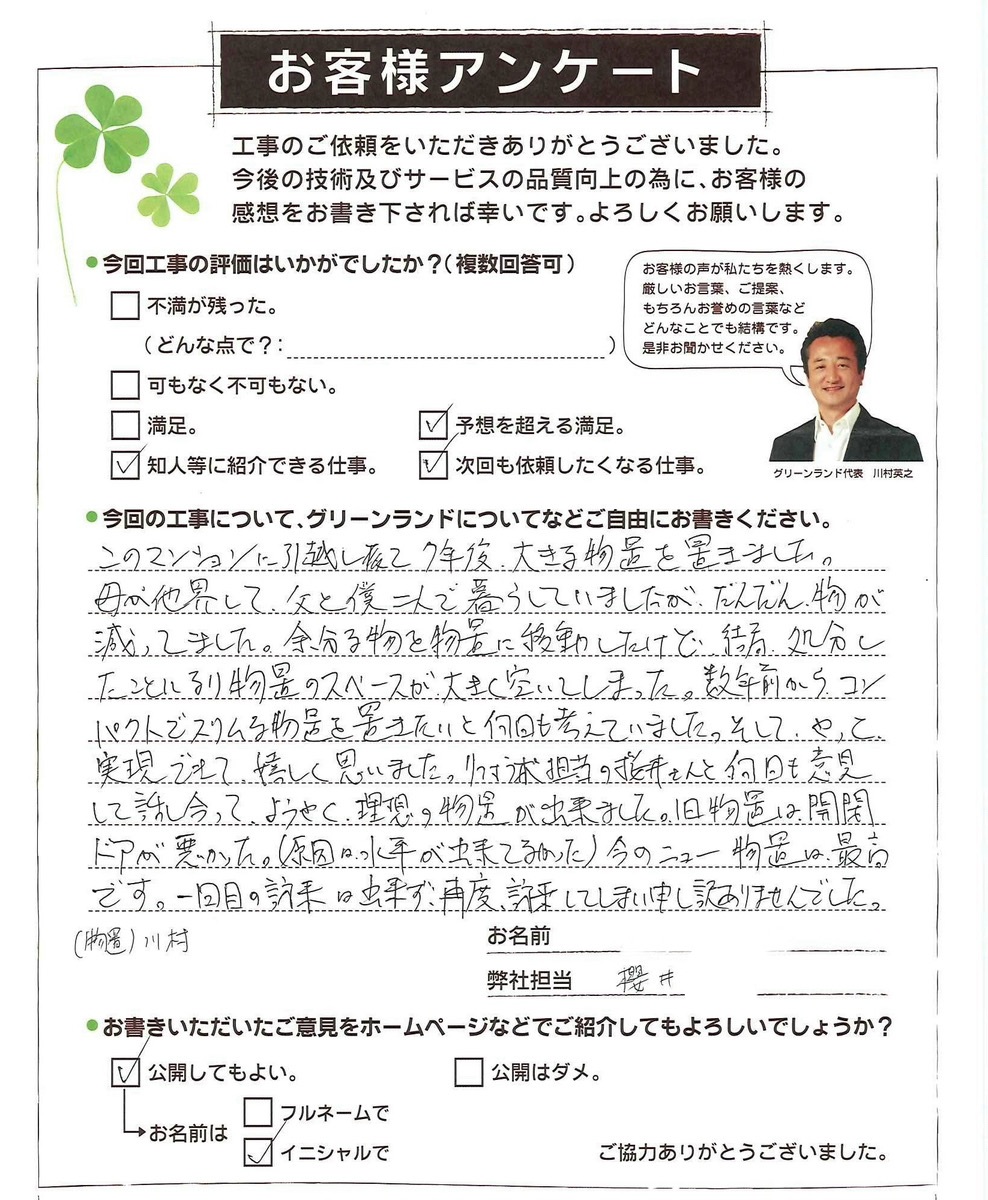 お客様アンケート
工事のご依頼をいただきありがとうございました。
今後の技術及びサービスの品質向上の為に、お客様の
感想をお書き下されば幸いです。よろしくお願いします。
●今回工事の評価はいかがでしたか?(複数回答可)
お客様の声が私たちを熱くします。
厳しいお言葉、ご提案、
もちろんお誉めの言葉など
どんなことでも結構です。
是非お聞かせください。
不満が残った。
(どんな点で?: )
可もなく不可もない。
満足。
予想を超える満足。
知人等に紹介できる仕事。
次回も依頼したくなる仕事。
グリーンランド代表 川村英之
●今回の工事について、グリーンランドについてなどご自由にお書きください。
このマンションに引越し来て7年後、大きな物置を置きました。
母が他界して、父と僕二人で暮らしていましたが、だんだん、物が
減ってしました。余分な物を物置に移動したけど、結局、処分し
たことになり物置のスペースが大きく空いてしまった。数年前から、コン
パクトでスリムな物置を置きたいと何回も考えていました。そして、やっと、
実現できて、嬉しく思いました。 担当の桜井さんと何回も意見
して話し合って、ようやく、理想の物置が出来ました。旧物置は開閉
ドアが悪かった。(原因は水平が出来てなかった)今のニュー物置は、最高
です。一回目の訪来は出来ず、再度、訪来してしまい申し訳ありませんでした。
(物置)川村
お名前
弊社担当 櫻井
●お書きいただいたご意見をホームページなどでご紹介してもよろしいでしょうか?
公開してもよい。
公開はダメ。
お名前は
フルネームで
イニシャルで
ご協力ありがとうございました。